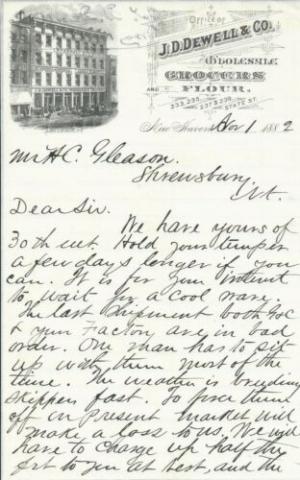 Office of
J.D. DEWELL & CO.
WHOLESALE
GROCERS
AND
FLOUR.
233, 235, 237 & 239
STATE ST.
New Haven Nov 1 1882
Mr H.C. Gleason.
Shrewsbury
Vt.
Dear Sir.
We have yours of
30th ult. Hold your temper
a few days longer if you
can. It is for your interest
to wait for a cool wave.
The last shipment both
& your Factory are in bad
order. One man has to sit
up with them most of the
time. The weather is breeding
skippers fast. To force them
off in present market will
make a loss to us. We will
have to charge up half the
frt to you at best, and the